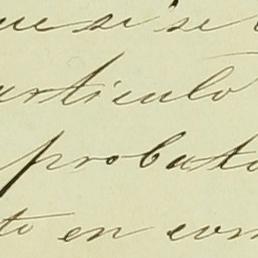 ue si se
articulo
probato
to en con